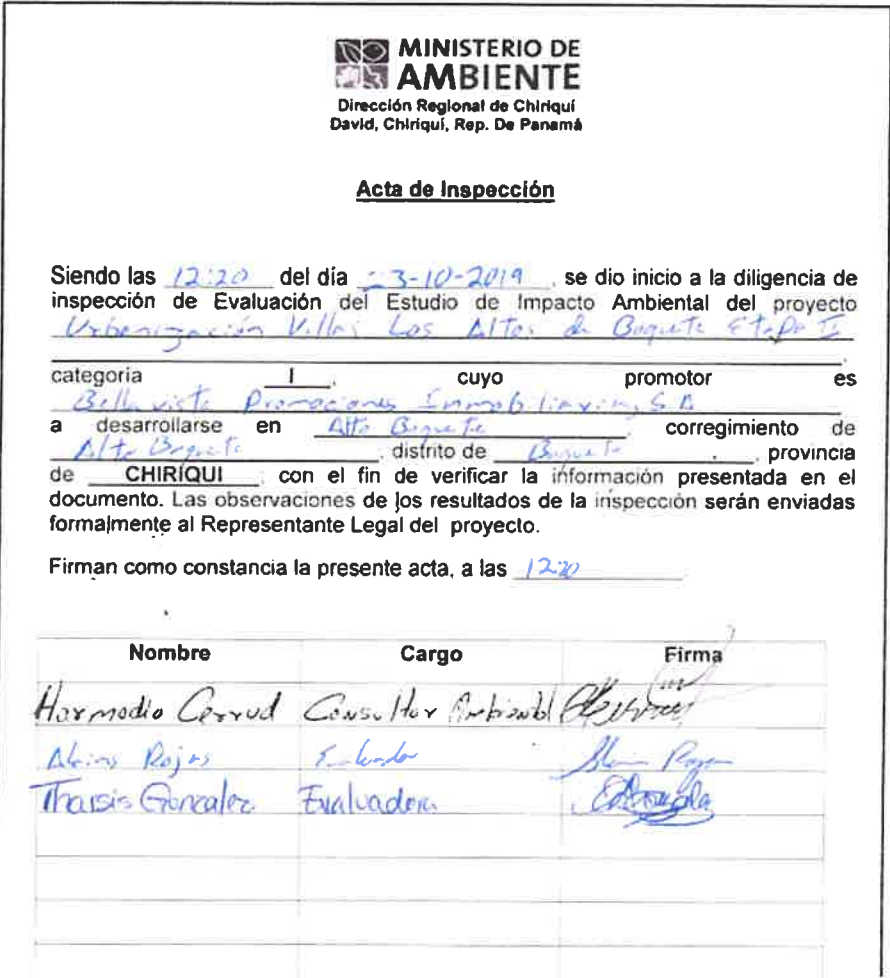 MINISTERIO DE
AMBIENTE
Dirección Regional de Chiriquí
David, Chiriquí, Rep. De Panamá
Acta de Inspección
Siendo las 12:20 del día 3-10-2019, se dio inicio a la diligencia de
inspección de Evaluación del Estudio de Impacto Ambiental del proyecto
Urbanización Villas Los Altos de Boquete Etapa II
categoría I, cuyo promotor es
Bella vista Promociones Inmobiliarias, S.A
a desarrollarse en Alto Boquete, corregimiento de
Alto Boquete, distrito de Boquete, provincia
de CHIRIQUI, con el fin de verificar la información presentada en el
documento. Las observaciones de los resultados de la inspección serán enviadas
formalmente al Representante Legal del proyecto.
Firman como constancia la presente acta, a las 12:20
Nombre Cargo Firma
Harmodio Cerrud Consultor Ambiental
Rojas
Tharsis González Evaluadora